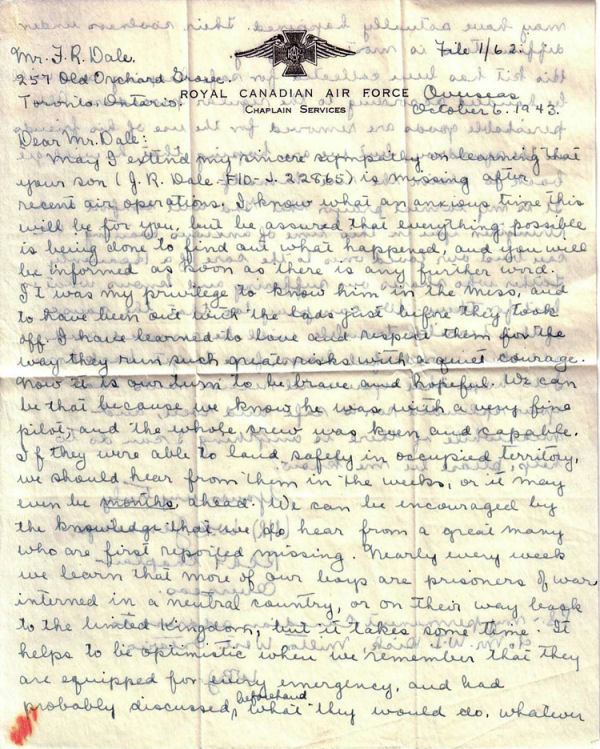 Mr. J. R. Dale. File 1/62.
257 Old Orchard Grove.
ROYAL CANADIAN AIR FORCE Overseas
Toronto. Ontario.
CHAPLAIN SERVICES October 6. 1943.
Dear Mr. Dale:
May I extend my sincere sympathy on learning that
your son (J. R. Dale - F/O - J. 22865) is missing after
recent air operations. I know what an anxious time this
will be for you, but be assured that everything possible
is being done to find out what happened, and you will
be informed as soon as there is any further word.
It was my privilege to know him in the mess, and
to have been out with the lads just before they took
off. I have learned to love and respect them for the
way they run such great risks with a quiet courage.
Now it is our turn to be brave and hopeful. We can
be that because we know he was with a very fine
pilot, and the whole crew was keen and capable.
If they were able to land safely in occupied territory,
we should hear from them in the weeks, or it may
even be months ahead. We can be encouraged by
the knowledge that we (do) hear from a great many
who are first reported missing. Nearly every week
we learn that more of our boys are prisoners of war
interned in a neutral country, or on their way back
to the United Kingdom, but it takes some time. It
helps to be optimistic when we remember that they
are equipped for every emergency, and had
probably discussed, beforehand what they would do, whatever